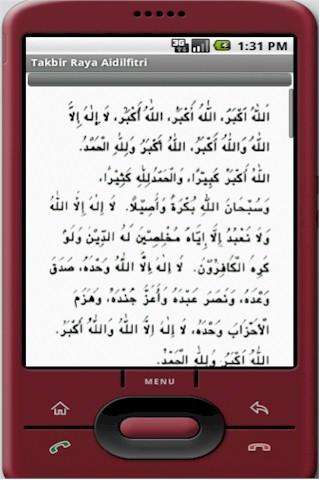 3G
1:31 PM
Takbir Raya Aidilfitri
اَللهُ اَكْبَرُ، اَللهُ أَكْبَرُ، اَللهُ أَكْبَرُ، لَا إِلٰهَ إِلَّا
اللهُ وَاللهُ أَكْبَرُ، اَللهُ أَكْبَرُ وَلِلّٰهِ الْحَمْدُ.
اَللهُ أَكْبَرُ كَبِيْرًا، وَالْحَمْدُلِلّٰهِ كَثِيْرًا،
وَسُبْحَانَ اللهِ بُكْرَةً وَأَصِيْلًا. لَا إِلٰهَ إِلَّا اللهُ
وَلَا نَعْبُدُ إِلَّا إِيَّاهُ مُخْلِصِيْنَ لَهُ الدِّيْنَ وَلَوْ
كَرِهَ الْكَافِرُوْنَ. لَا إِلٰهَ اِلَّا اللهُ وَحْدَهُ، صَدَقَ
وَعْدَهُ، وَنَصَرَ عَبْدَهُ وَأَعَزَّ جُنْدَهُ، وَهَزَمَ
الْأَحْزَابَ وَحْدَهُ، لَا إِلٰهَ اِلَّا اللهُ وَاللهُ أَكْبَرُ.
اَللهُ اَكْبَرُ وَلِلّٰهِ الْحَمْدُ.
MENU